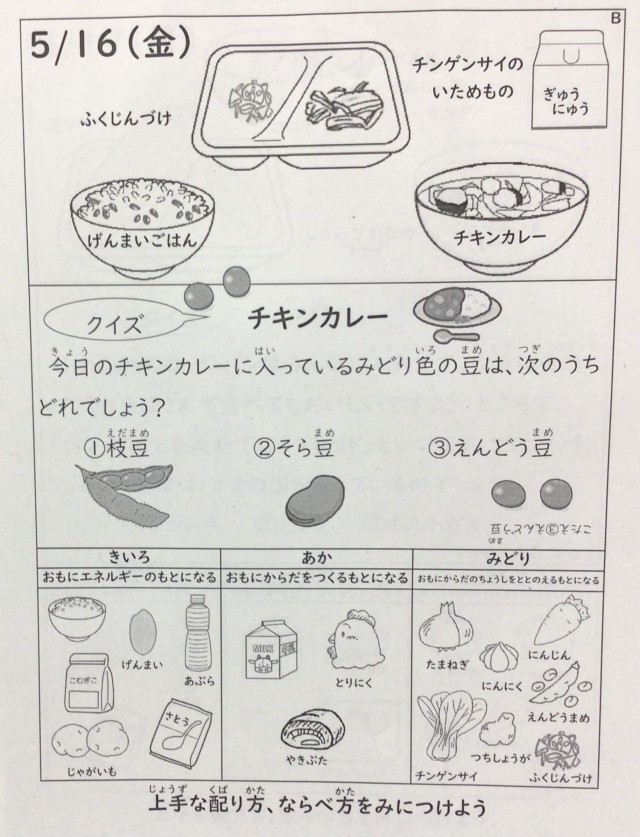 B
5/16(金)
チンゲンサイの
いためもの
ぎゅう
にゅう
ふくじんづけ
げんまいごはん
チキンカレー
クイズ
チキンカレー
今日のチキンカレーに入っているみどり色の豆は、次のうち
どれでしょう?
①枝豆
②そら豆
③えんどう豆
こたえ③えんどう豆
きいろ
おもにエネルギーのもとになる
げんまい
あぶら
こむぎこ
さとう
じゃがいも
あか
おもにからだをつくるもとになる
MILK
とりにく
やきぶた
みどり
おもにからだのちょうしをととのえるもとになる
たまねぎ
にんじん
にんにく
えんどうまめ
チンゲンサイ
つちしょうが
ふくじんづけ
上手な配り方、ならべ方をみにつけよう